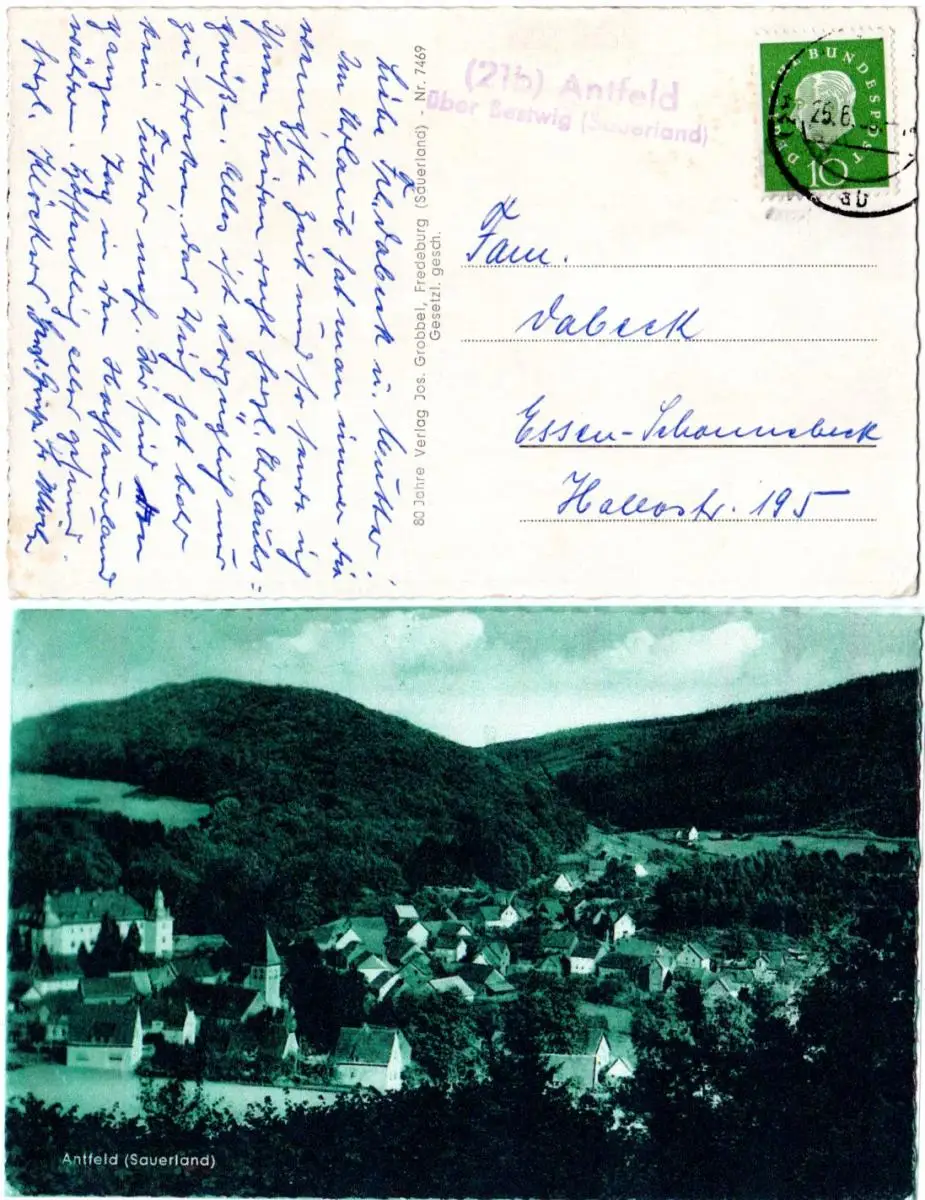 Liebe Frl. Dabeck u. Mutter!
Im Urlaub hat man immer die
wenigste Zeit und so sende ich
Ihnen beiden recht herzl. Urlaubs=
grüße. Alles ist vorzüglich nur
zu trocken, das Vieh hat bald
kein Futter mehr. Wir sind den
ganzen Tag in den Hochsauerland
wäldern. Hoffentlich alles gesund
herzl.
80 Jahre Verlag Jos. Grobbel, Fredeburg (Sauerland) - Nr. 7469
Gesetzl. gesch.
(21b) Antfeld
über Bestwig (Sauerland)
DEUTSCHE BUNDESPOST
10
25.6.
ab
Fam.
Dabeck
Essen-Schonnebeck
Hallostr. 195
Antfeld (Sauerland)